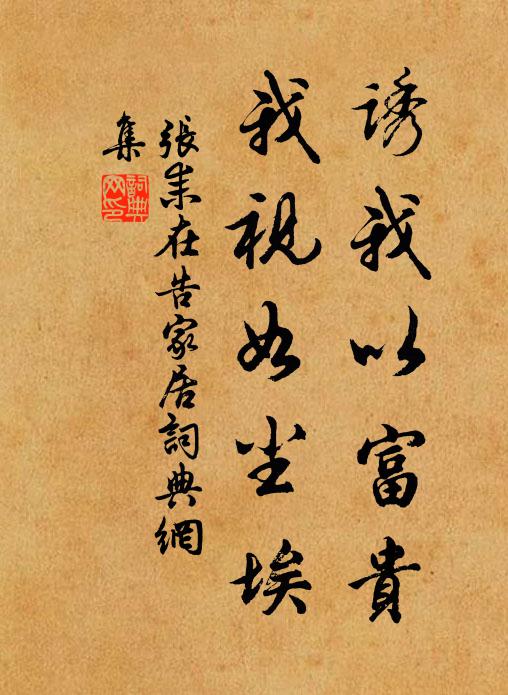 誘我以富貴
我視如尘埃
張耒在告家居詞典網
集
詞典
网印